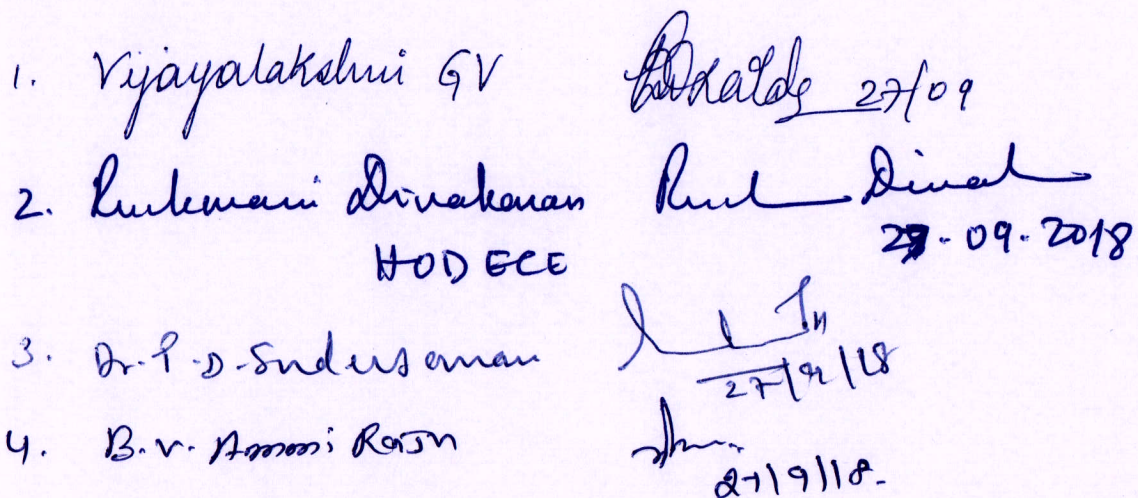 1. Vijayalakshmi GV 27/09
2. Rukmani Dinakaran
HODECE 27.09.2018
3. Dr. P.D. Sudersanan 27/9/18
4. B.V. Ammi Raju 27/9/18.